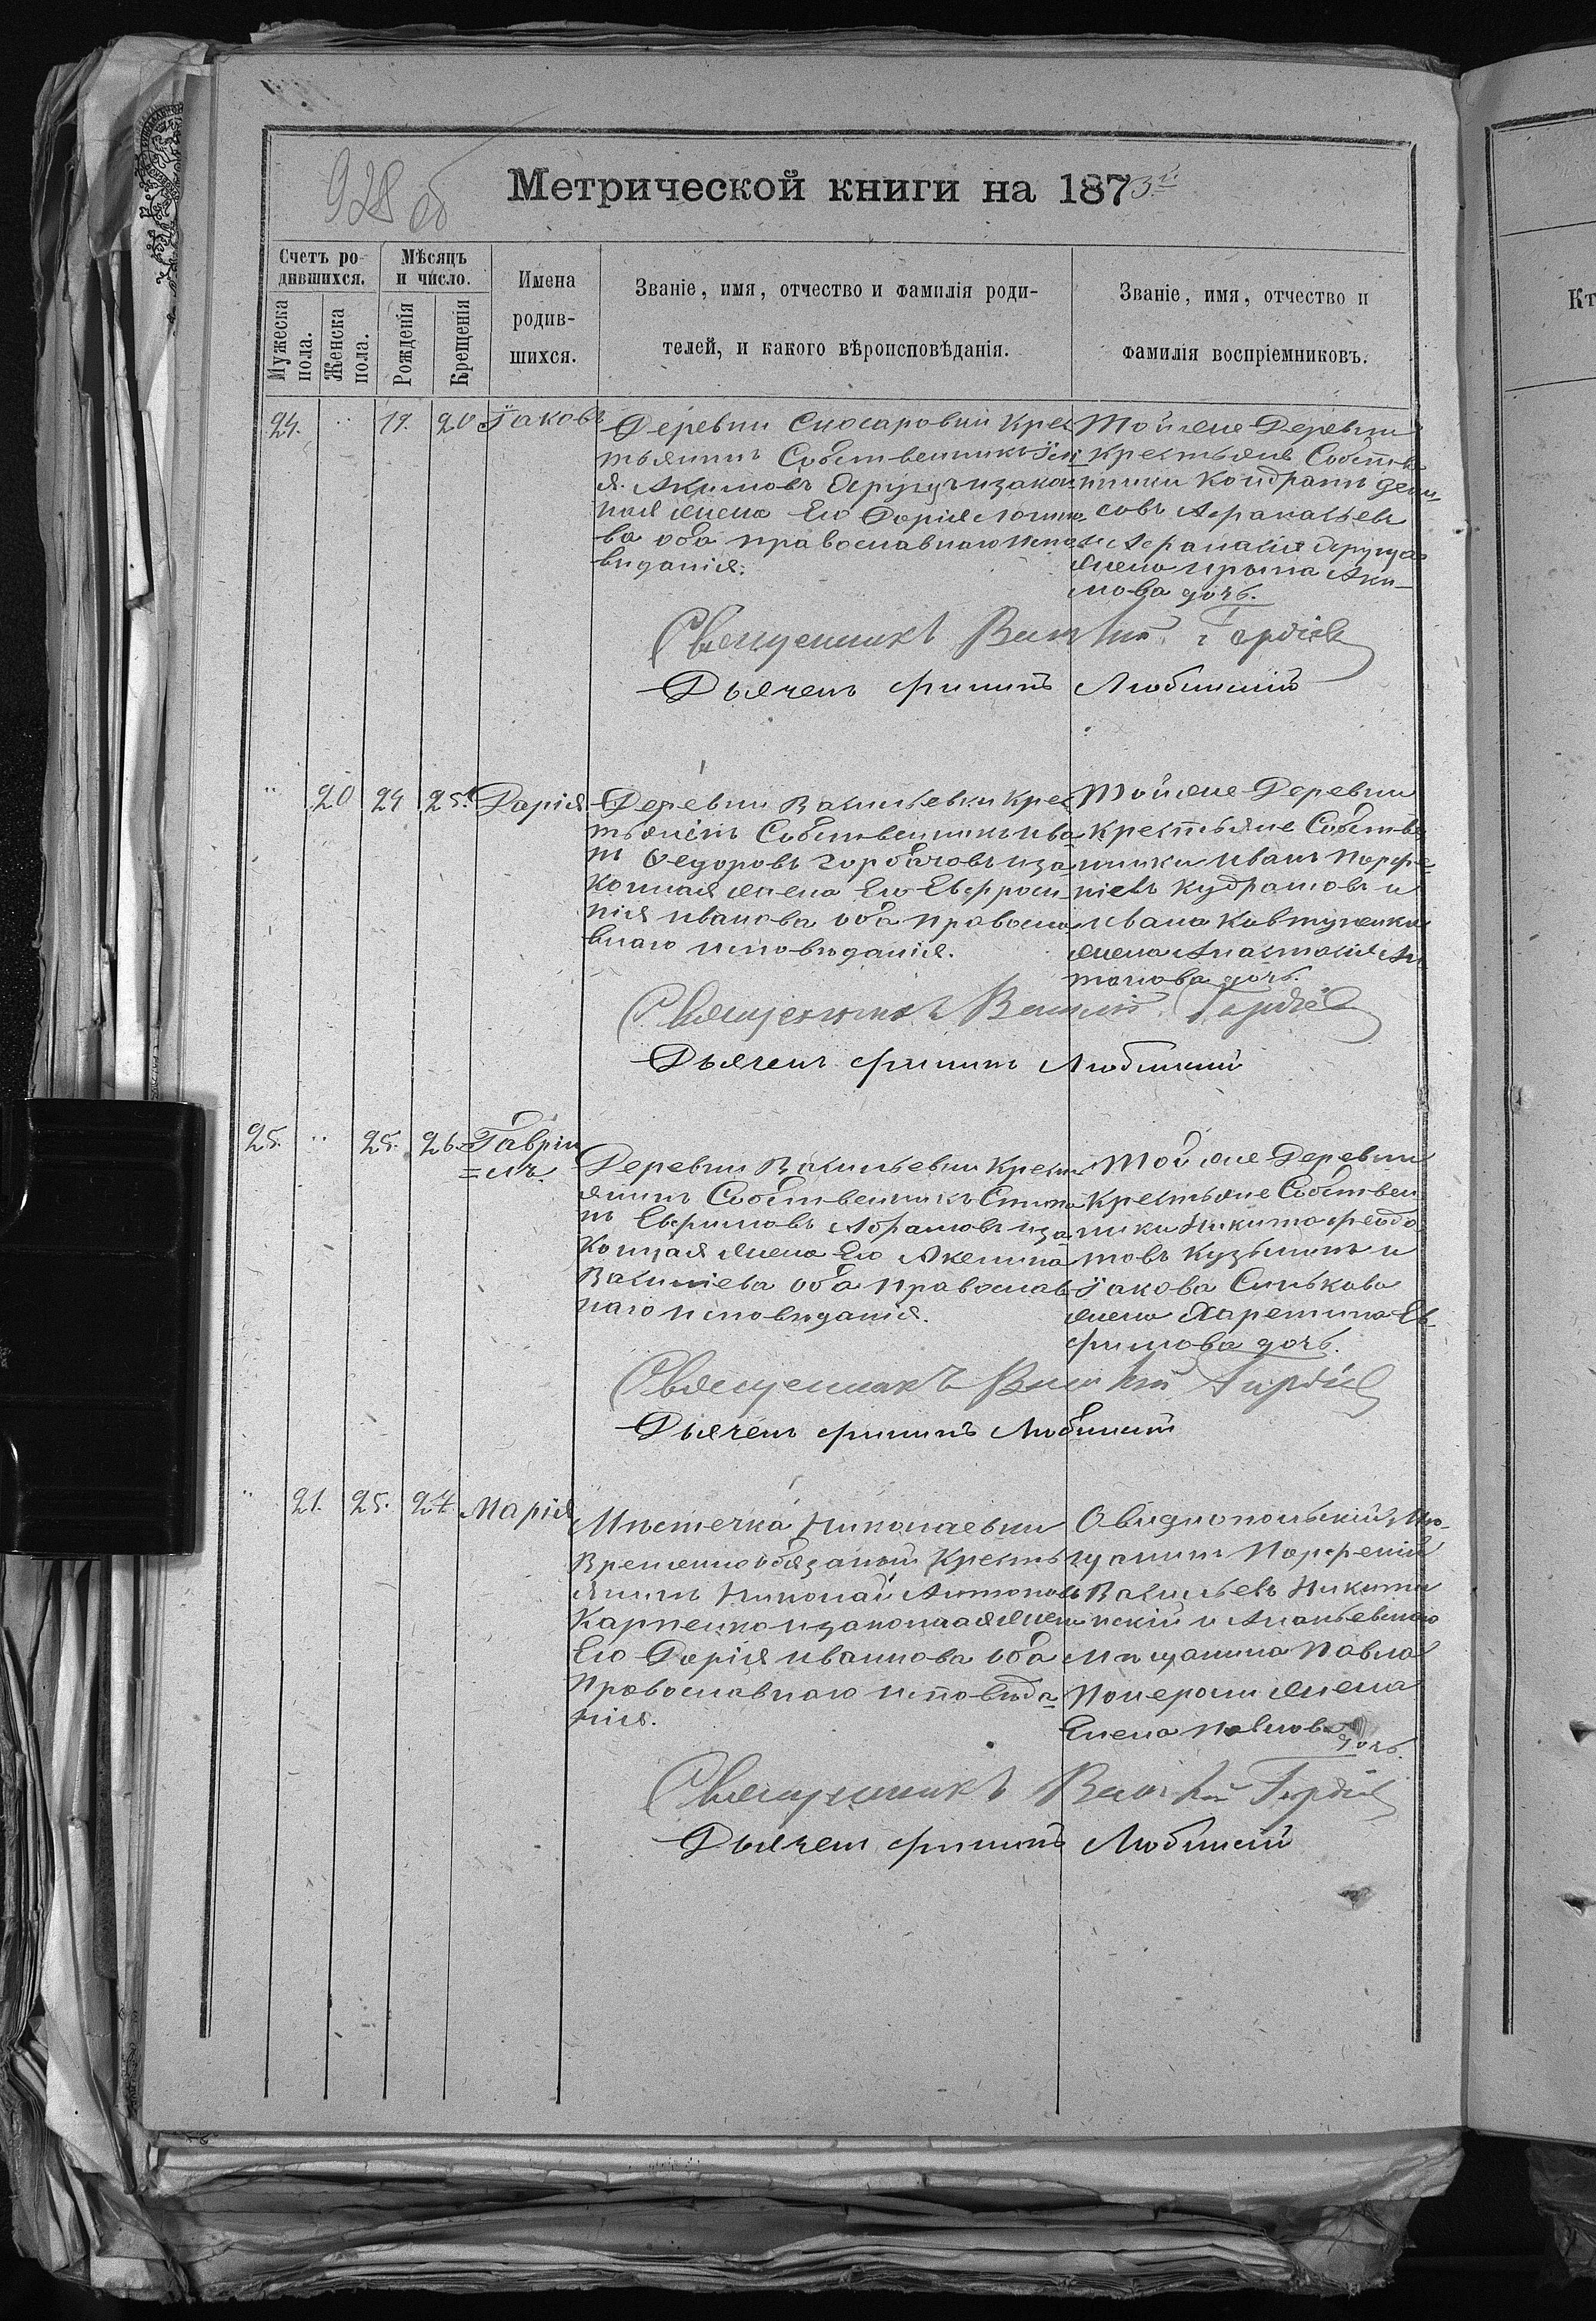 928 об
Метрической книги на 1873й
Счетъ ро-
дившихся.
Мѣсяцъ
и число.
Имена
родив-
шихся.
Званіе, имя, отчество и фамилія роди-
телей, и какого вѣроисповѣданія.
Званіе, имя, отчество и
фамилія воспріемниковъ.
Мужеска
пола.
Женска
пола.
Рожденія
Крещенія
24. 19. 20 Іаковъ
Деревни Слюсаровки Крес
тьянинъ Собственникъ
я Акимовъ и закон
ная жена Его Дарія Логино
ва оба православнаго испо
веданія.
Той же Деревни
крестьяне Собстве
нники Кондратъ Дени
совъ Афанасьевъ
и Афанасія
жена Ирина Аки-
мова дочь.
Священникъ Василій Гордіевъ
Дьячекъ Филипъ Любинскій
20 24 25. Дарія
Деревни Васильевки Крес
тьянинъ Собственникъ Ива
нъ Федоровъ Горбачовъ и за
конная жена Его Евфроси
нія Иванова оба Правосла
внаго исповѣданія.
Той же Деревни
крестьяне Собстве
нники Иванъ Парфе
ніевъ Кудрашовъ и
Ивана Ковтуненка
жена Анастасія Ан
тонова дочь.
Священникъ Василій Гордіевъ
Дьячекъ Филипъ Любинскій
25. 25. 26. Гаврии
=лъ.
Деревни Васильевки Кресть
янинъ Собственникъ Степа
нъ Ефимовъ Абрамовъ и за
конная жена Его Акелина
Василиева оба православ
наго исповѣданія.
Той же Деревни
Крестьяне Собствен
ники Никита Феодо
товъ Кузьминъ и
Іакова Синькова
жена Харетина Еф
фимова дочь.
Священникъ Василій Гордіевъ
Дьячекъ Филипъ Любинскій
21. 25. 27. Марія
Мѣстечка Николаевки
Временнообязаный Кресть
янинъ Николай Антоновъ
Карпенко и законная жена
Его Дарія Иванова оба
Православнаго исповѣда
нія.
Овидиопольскій Мѣ-
щанинъ Парфеній
Васильевъ Никити
нскій и Ананьевскаго
Мѣщанина Павла
жена
Елена Павлова
дочь.
Священникъ Василій Гордіевъ
Дьячекъ Филипъ Любинскій
Кт